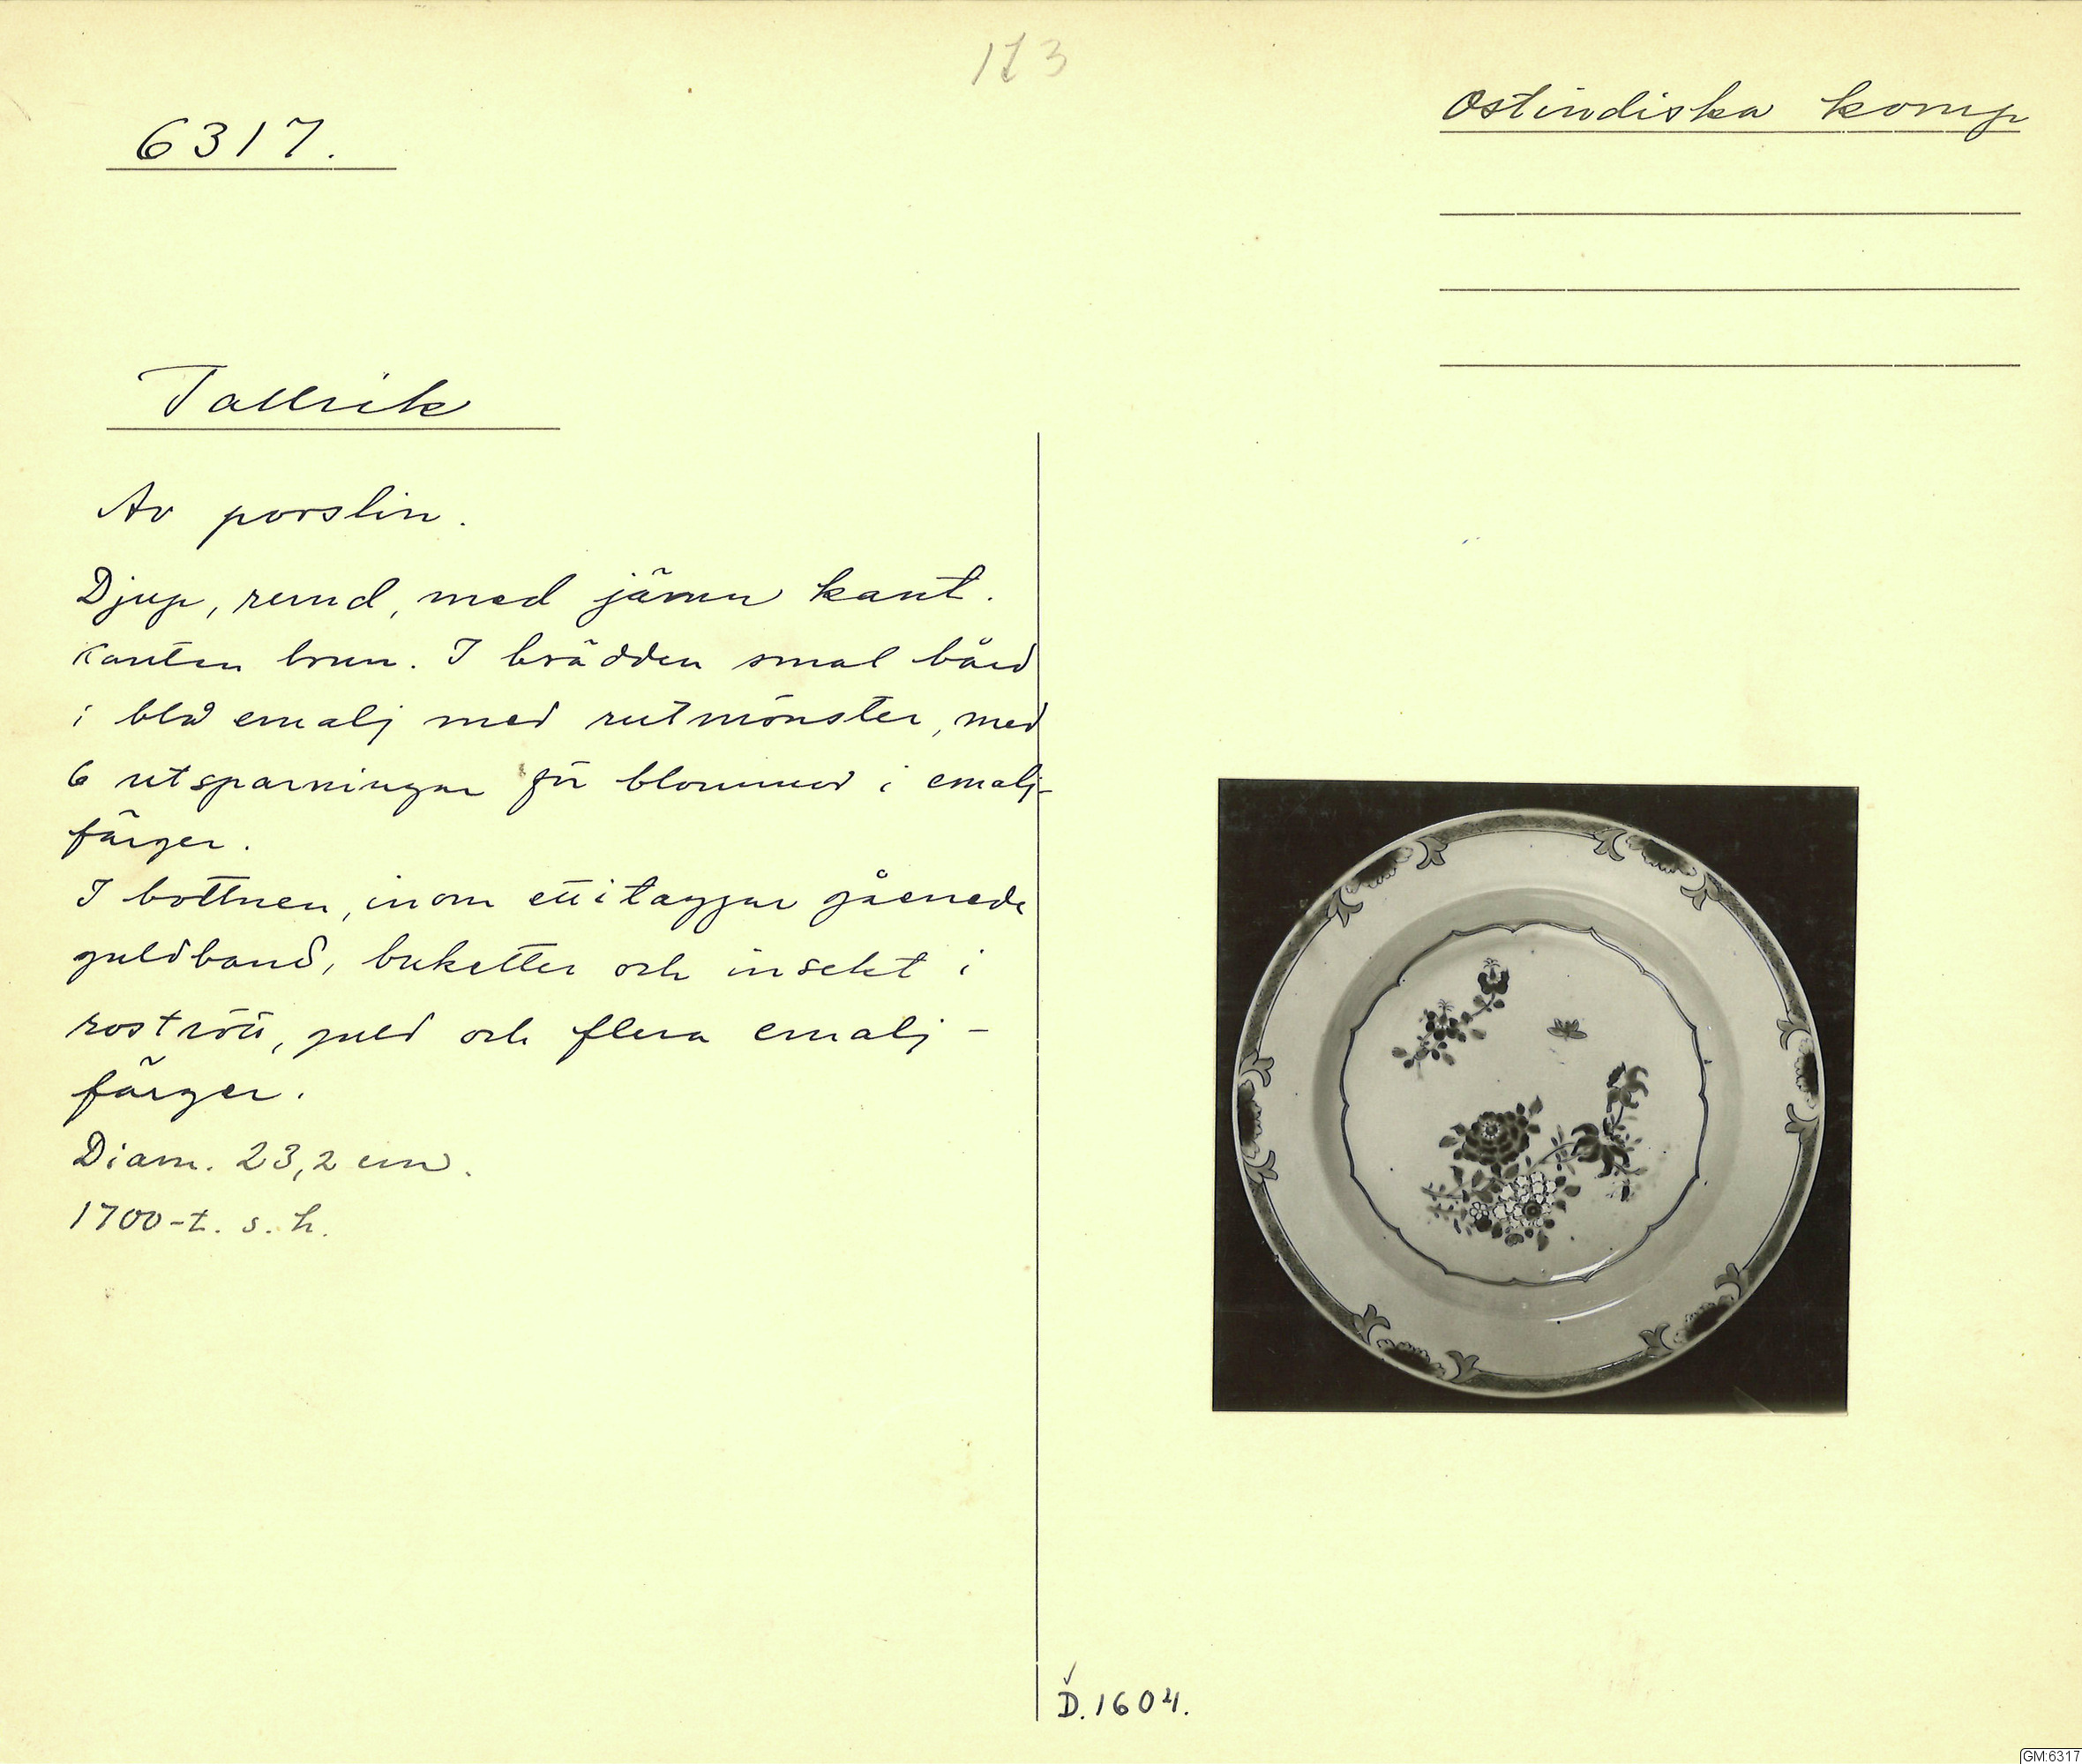 173
6317.
Ostindiska komp
Tallrik
Av porslin.
Djup, rund, med jämn kant.
Kanten brun. I brädden smal bård
i blå emalj med rutmönster, med
6 utsparningar för blommor i emalj-
färger.
I bottnen, inom ett i taggar gående
guldband, buketter och insekt i
rostrött, guld och flera emalj-
färger.
Diam. 23,2 cm.
1700-t. s. h.
D. 1604.
GM:6317